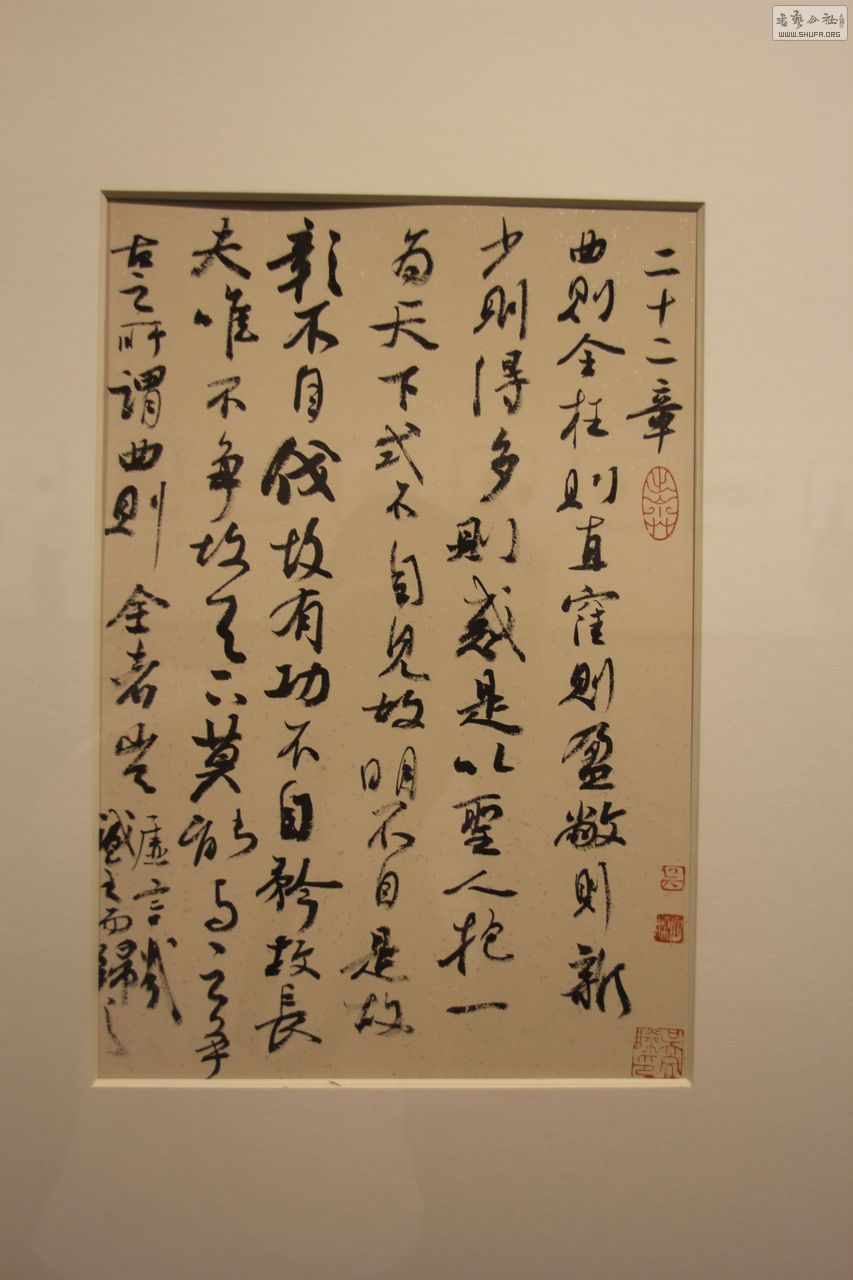 二十二章
曲則全枉則直窪則盈敝則新
少則得多則惑是以聖人抱一
為天下式不自見故明不自是故
彰不自伐故有功不自矜故長
夫唯不争故天下莫能与之争
古之所謂曲則全者豈
虚言哉
誠全而歸之
書藝公社
WWW.SHUFA.ORG